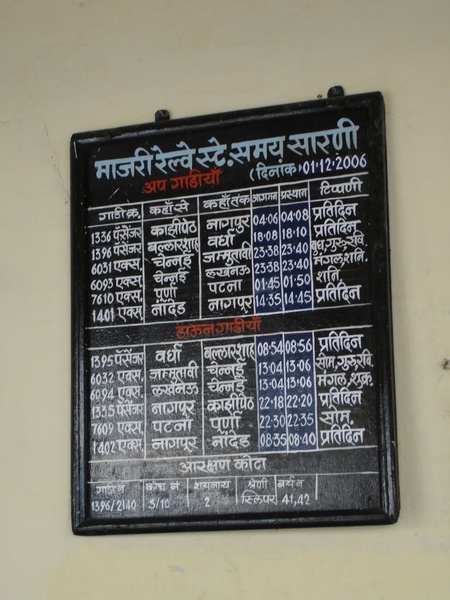 माजरी रेल्वे स्टे. समय सारणी
(दिनांक) 01.12.2006
अप गाडीयाँ
गाडी क्र. कहाँ से कहाँ तक आगमन प्रस्थान टिप्पणी
1336 पॅसेंजर काझीपेठ नागपुर 04.06 04.08 प्रतिदिन
1396 पॅसेंजर बल्लारशाह वर्धा 18.08 18.10 प्रतिदिन
6031 एक्स. चेन्नई जम्मुतावी 23.38 23.40 बुध, गुरू, रवि.
6093 एक्स. चेन्नई लखनऊ 23.38 23.40 मंगल, शनि.
7610 एक्स. पुर्णा पटना 01.45 01.50 शनि.
1401 एक्स. नांदेड नागपुर 14.35 14.45 प्रतिदिन
डाऊन गाडीयाँ
1395 पॅसेंजर वर्धा बल्लारशाह 08.54 08.56 प्रतिदिन
6032 एक्स. जम्मुतावी चेन्नई 13.04 13.06 सोम, गुरू, रवि
6094 एक्स. लखनऊ चेन्नई 13.04 13.06 मंगल, शुक्र.
1335 पॅसेंजर नागपुर काझीपेठ 22.18 22.20 प्रतिदिन
7609 एक्स. पटना पुर्णा 22.30 22.35 सोम.
1402 एक्स. नागपुर नांदेड 08.35 08.40 प्रतिदिन
आरक्षण कोटा
गाडी नं कोच नं शयनाय श्रेणी बर्थ नं
1396/2140 S/10 2 स्लिपर 41,42